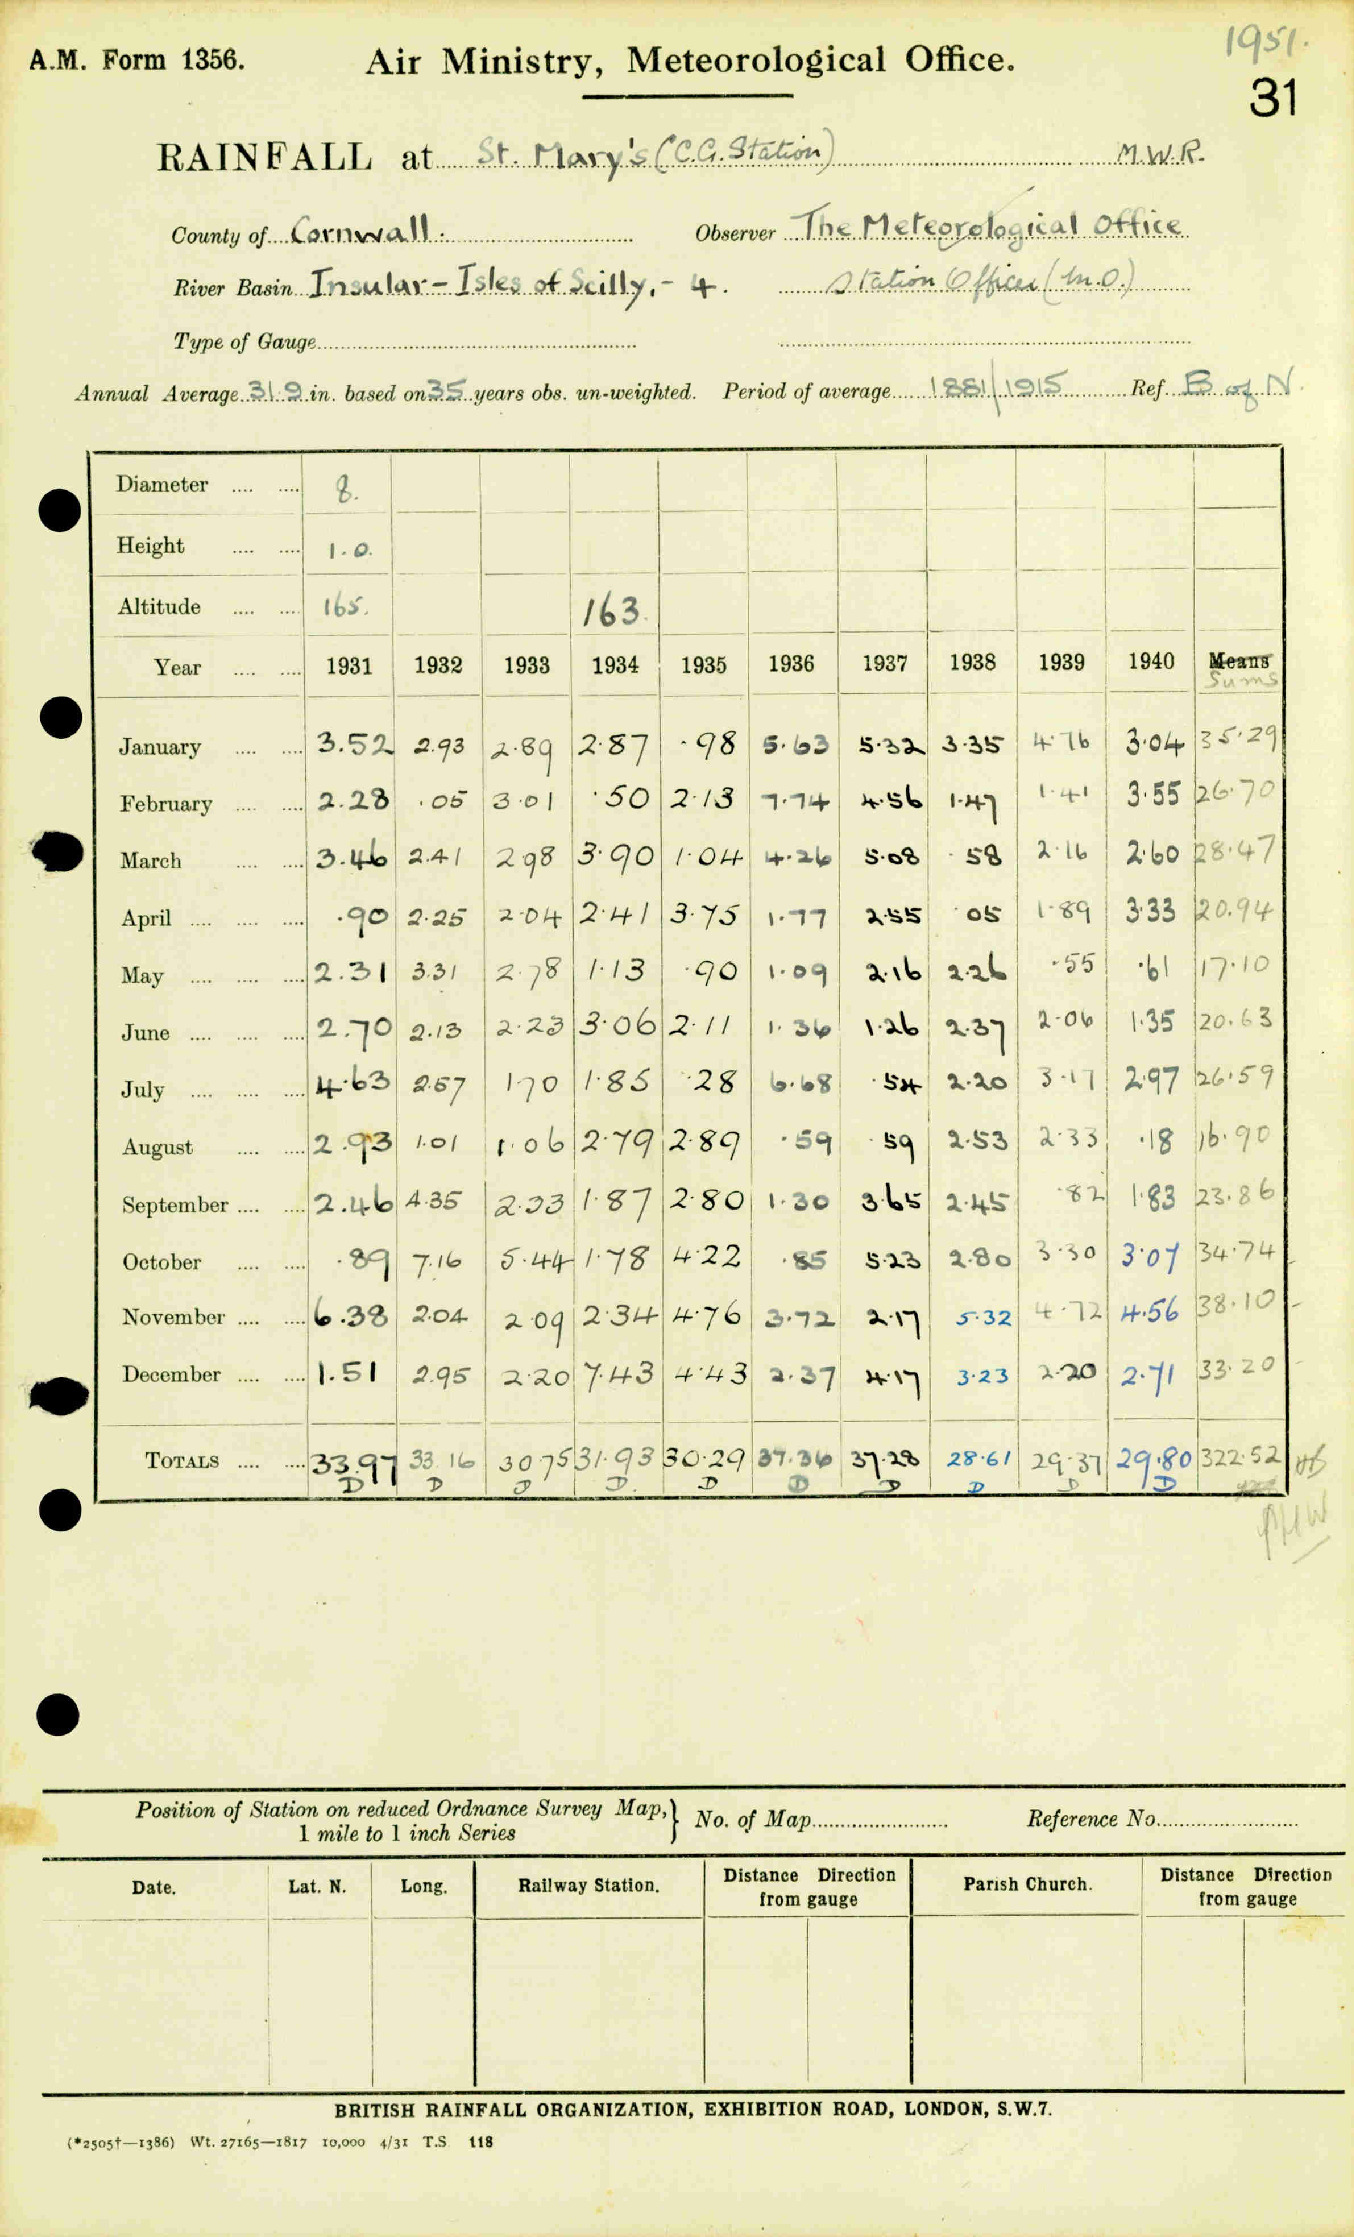 1951.
A.M. Form 1356. Air Ministry, Meteorological Office.
31
RAINFALL at St. Mary's (C.G. Station) M.W.R.
County of Cornwall. Observer The Meteorological Office
River Basin Insular - Isles of Scilly, - 4. Station Officer (M.O.)
Type of Gauge
Annual Average 31.9 in. based on 35 years obs. un-weighted. Period of average 1881/1915 Ref. B of N.
Diameter 8.
Height 1.0.
Altitude 165. 163.
Year 1931 1932 1933 1934 1935 1936 1937 1938 1939 1940 Means
Sums
January 3.52 2.93 2.89 2.87 .98 5.63 5.32 3.35 4.76 3.04 35.29
February 2.28 .05 3.01 .50 2.13 7.74 4.56 1.47 1.41 3.55 26.70
March 3.46 2.41 2.98 3.90 1.04 4.26 5.08 .58 2.16 2.60 28.47
April .90 2.25 2.04 2.41 3.75 1.77 2.55 .05 1.89 3.33 20.94
May 2.31 3.31 2.78 1.13 .90 1.09 2.16 2.26 .55 .61 17.10
June 2.70 2.13 2.23 3.06 2.11 1.36 1.26 2.37 2.06 1.35 20.63
July 4.63 2.57 1.70 1.85 .28 6.68 .54 2.20 3.17 2.97 26.59
August 2.93 1.01 1.06 2.79 2.89 .59 .59 2.53 2.33 .18 16.90
September 2.46 4.35 2.33 1.87 2.80 1.30 3.65 2.45 .82 1.83 23.86
October .89 7.16 5.44 1.78 4.22 .85 5.23 2.80 3.30 3.07 34.74
November 6.38 2.04 2.09 2.34 4.76 3.72 2.17 5.32 4.72 4.56 38.10
December 1.51 2.95 2.20 7.43 4.43 2.37 4.17 3.23 2.20 2.71 33.20
TOTALS 33.97 33.16 30.75 31.93 30.29 37.36 37.28 28.61 29.37 29.80 322.52
D D D D. D D D D D D
Position of Station on reduced Ordnance Survey Map, } No. of Map Reference No.
1 mile to 1 inch Series
Date. Lat. N. Long. Railway Station. Distance Direction from gauge Parish Church. Distance Direction from gauge
BRITISH RAINFALL ORGANIZATION, EXHIBITION ROAD, LONDON, S.W.7.
(*2505†—1386) Wt. 27165—1817 10,000 4/31 T.S 118